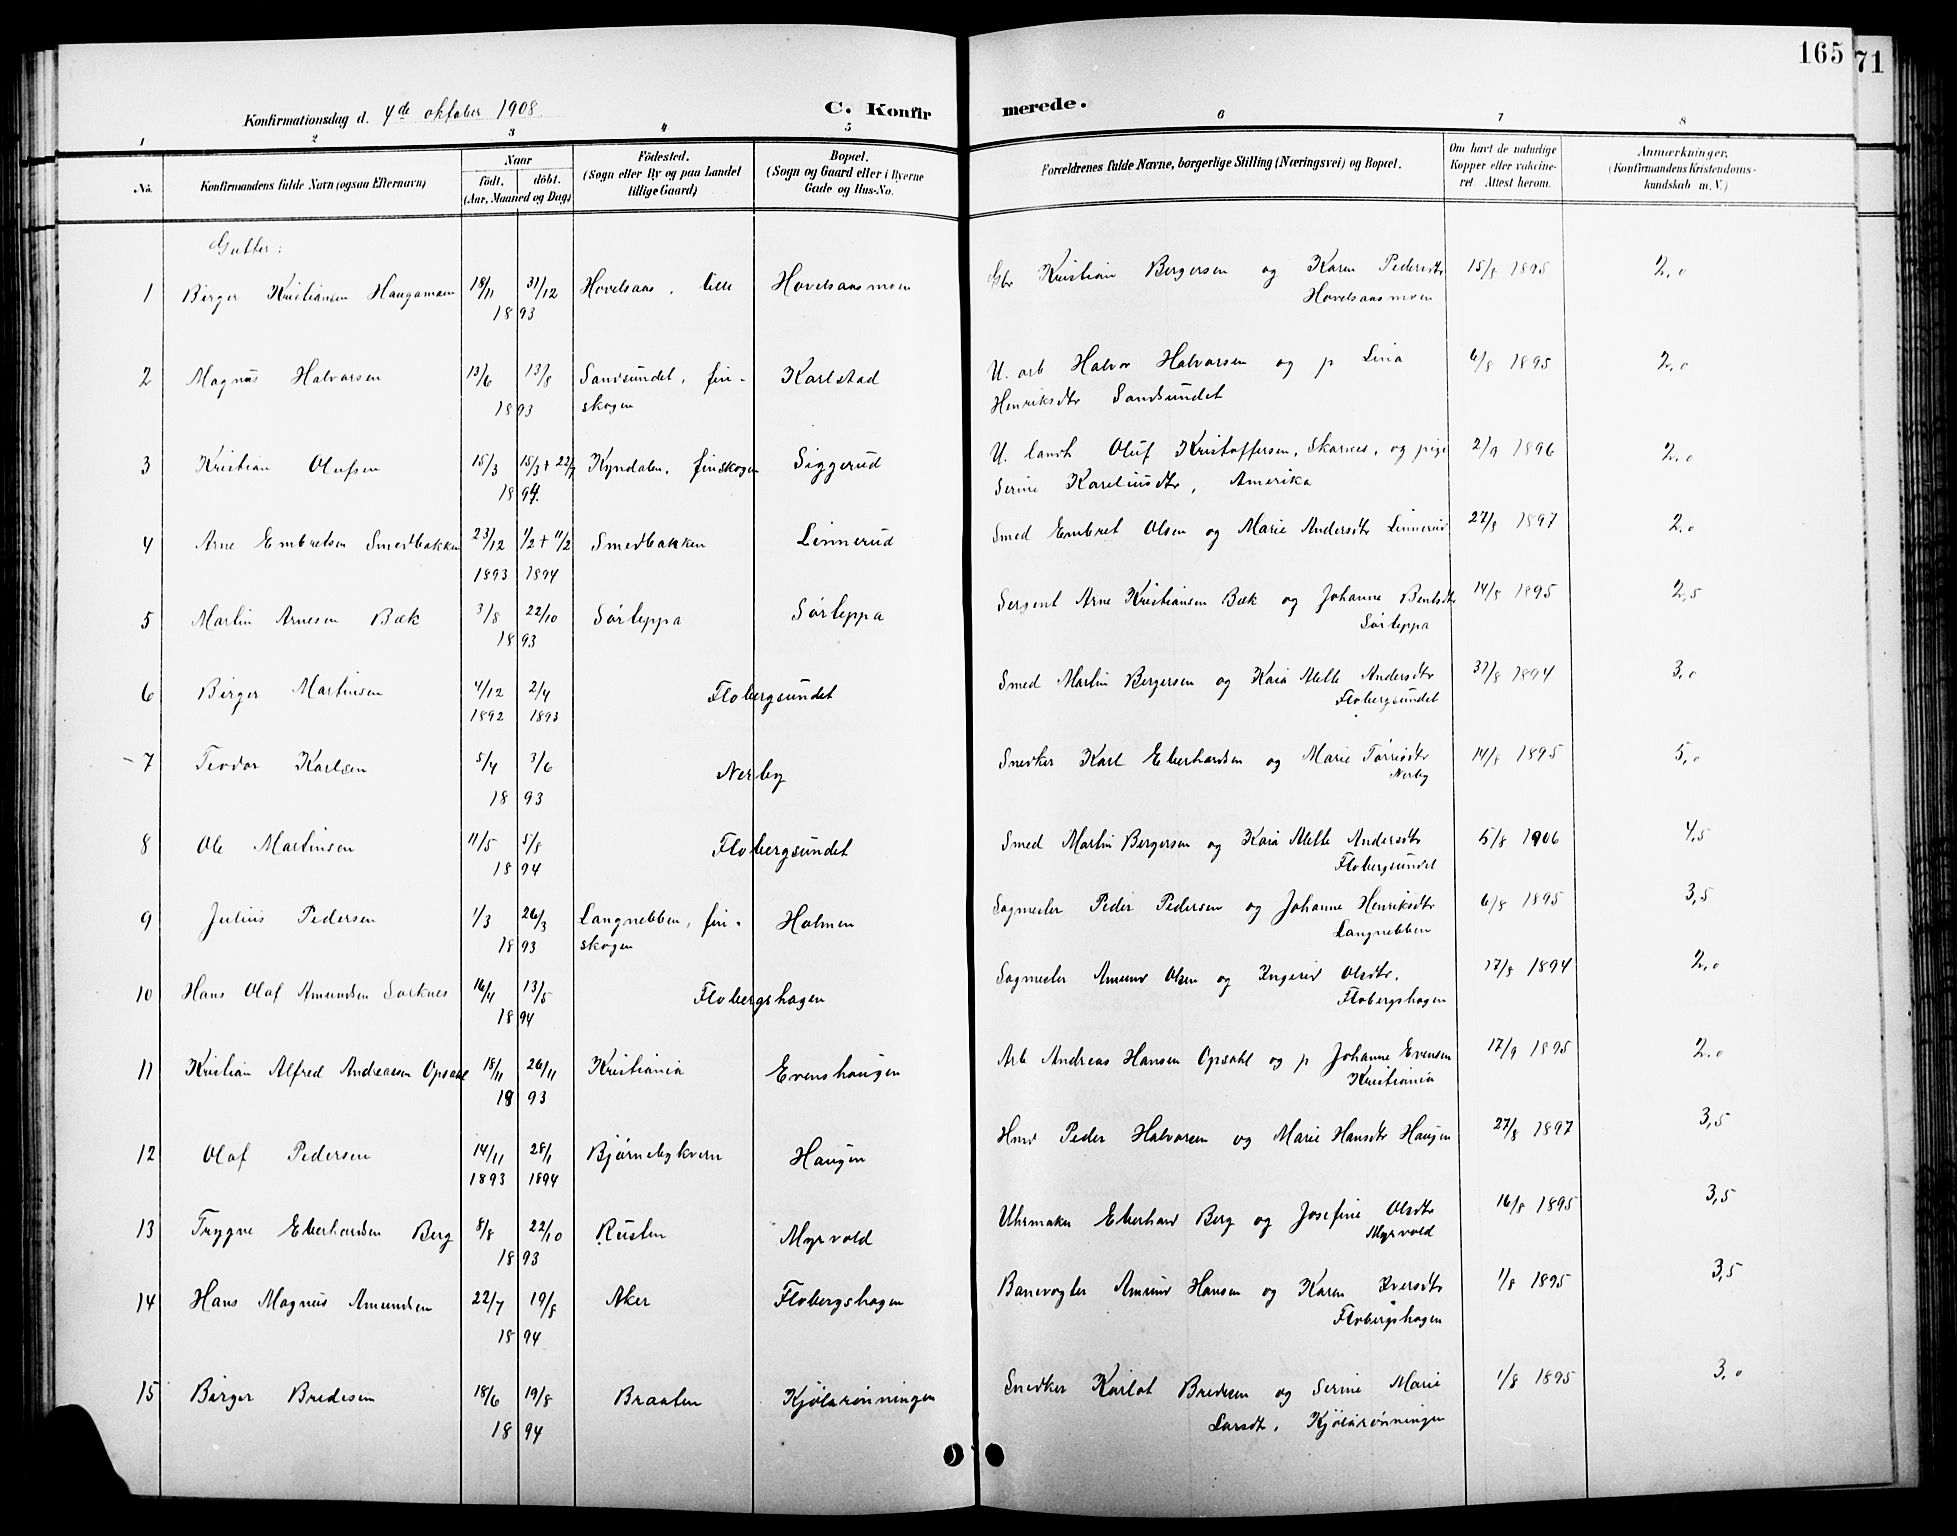 165
71
Konfirmationsdag d. 4de oktober 1908.
C. Konfirmerede.
1 2 3 4 5 6 7 8
No.
Konfirmandens fulde Navn (ogsaa Efternavn)
Naar
Født. døbt.
(Aar, Maaned og Dag)
Fødested.
(Sogn eller By og paa Landet
tillige Gaard)
Bopæl.
(Sogn og Gaard eller i Byerne
Gade og Hus-No.
Forældrenes fulde Navne, borgerlige Stilling (Næringsvei) og Bopæl.
Om havt de naturlige
Kopper eller vakcineret. Attest herom.
Anmærkninger.
(Konfirmandens Kristendomskundskab m. V.)
Gutter:
1 Birger Kristiansen Haugamoen 18/11 31/12 Hovelsaas, lille Hovelsaasmoen Kristian Bergersen og Karen Pedersdtr 15/8 1895 2,0
1893 Hovelsaasmoen
2 Magnus Halvorsen 13/6 13/8 Sandsundet, fin- Karlstad U. arb Halvor Halvorsen og p Lina 6/8 1895 2,0
1893 skogen Henriksdtr Sandsundet
3 Kristian Olufsen 15/3 15/3 + 22/7 Kyndalen, finskogen Siggerud U. landh Oluf Kristoffersen, Skarnes, og pige 2/9 1896 2,0
1894. Serine Kareliusdtr, Amerika
4 Arne Embretsen Smedbakken 23/12 1/2 + 11/2 Smedbakken Linnerud Smed Embret Olsen og Marie Andersdtr Linnerud 27/8 1897 2,0
1893 1894
5 Martin Arnesen Bæk 3/8 22/10 Sørleppa Sørleppa Sergent Arne Kristiansen Bæk og Johanne Bentsdtr 14/8 1895 2,5
1893 Sørleppa
6 Birger Martinsen 4/12 2/4 Flobergsundet Smed Martin Bergersen og Kaia Mette Andersdtr 31/8 1894 3,0
1892 1893 Flobergsundet
7 Teodor Karlsen 5/4 3/6 Nerby Snedker Karl Eberhardsen og Marie Torrisdtr 14/8 1895 5,0
1893 Nerby
8 Ole Martinsen 11/5 5/8 Flobergsundet Smed Martin Bergersen og Kaia Mette Andersdtr 5/8 1906 4,5
1894 Flobergsundet
9 Julius Pedersen 1/3 26/3 Langnebben, fin- Holmen Sagmester Peder Pedersen og Johanne Henriksdtr 6/8 1895 3,5
1893 skogen Langnebben
10 Hans Olaf Amundsen Sorknes 16/4 13/5 Flobergshagen Sagmester Amund Olsen og Ingerid Olsdtr. 17/8 1894 2,0
1894 Flobergshagen
11 Kristian Alfred Andreasen Opsahl 18/11 26/11 Kristiania Evenshaugen Arb Andreas Hansen Opsahl og p Johanne Evensen 17/9 1895 2,0
1893 Kristiania
12 Olaf Pedersen 14/11 28/1 Bjørnebykvern Haugen Hmd Peder Halvorsen og Marie Hansdtr Haugen 27/8 1897 3,5
1893 1894
13 Trygve Eberhardsen Berg 8/8 22/10 Rusten Myrvold Uhrmaker Eberhard Berg og Josefine Olsdtr 16/8 1895 3,5
1893 Myrvold
14 Hans Magnus Amundsen 22/7 19/8 Aker Flobergshagen Banevogter Amund Hansen og Karen Iversdtr 1/8 1895 3,5
1894 Flobergshagen
15 Birger Bredesen 18/6 19/8 Braaten Kjølarønningen Snedker Karlot Bredesen og Serine Marie 1/8 1895 3,0
1894 Larsdtr, Kjølarønningen